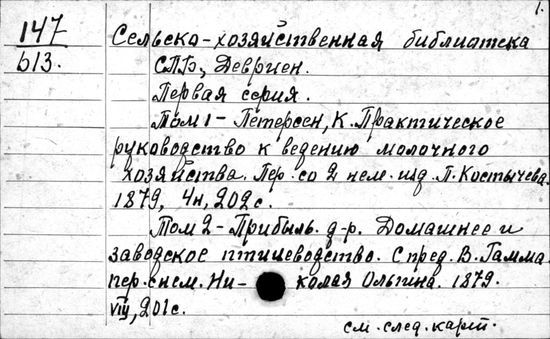 1.
147
b13.
Сельско-хозяйственная библиотека
СПб, Девриен.
Первая серия.
Том 1 - Петерсен, К. Практическое
руководство к ведению молочного
хозяйства. Пер. со 2 нем. изд. П. Костычева.
1879, 4н, 202 с.
Том 2 - Прибыль. д-р. Домашнее и
заводское птицеводство. С пред. В. Гамма.
пер. с нем. Ни- колая Ольгина. 1879.
VIII, 201 с.
см. след. карт.